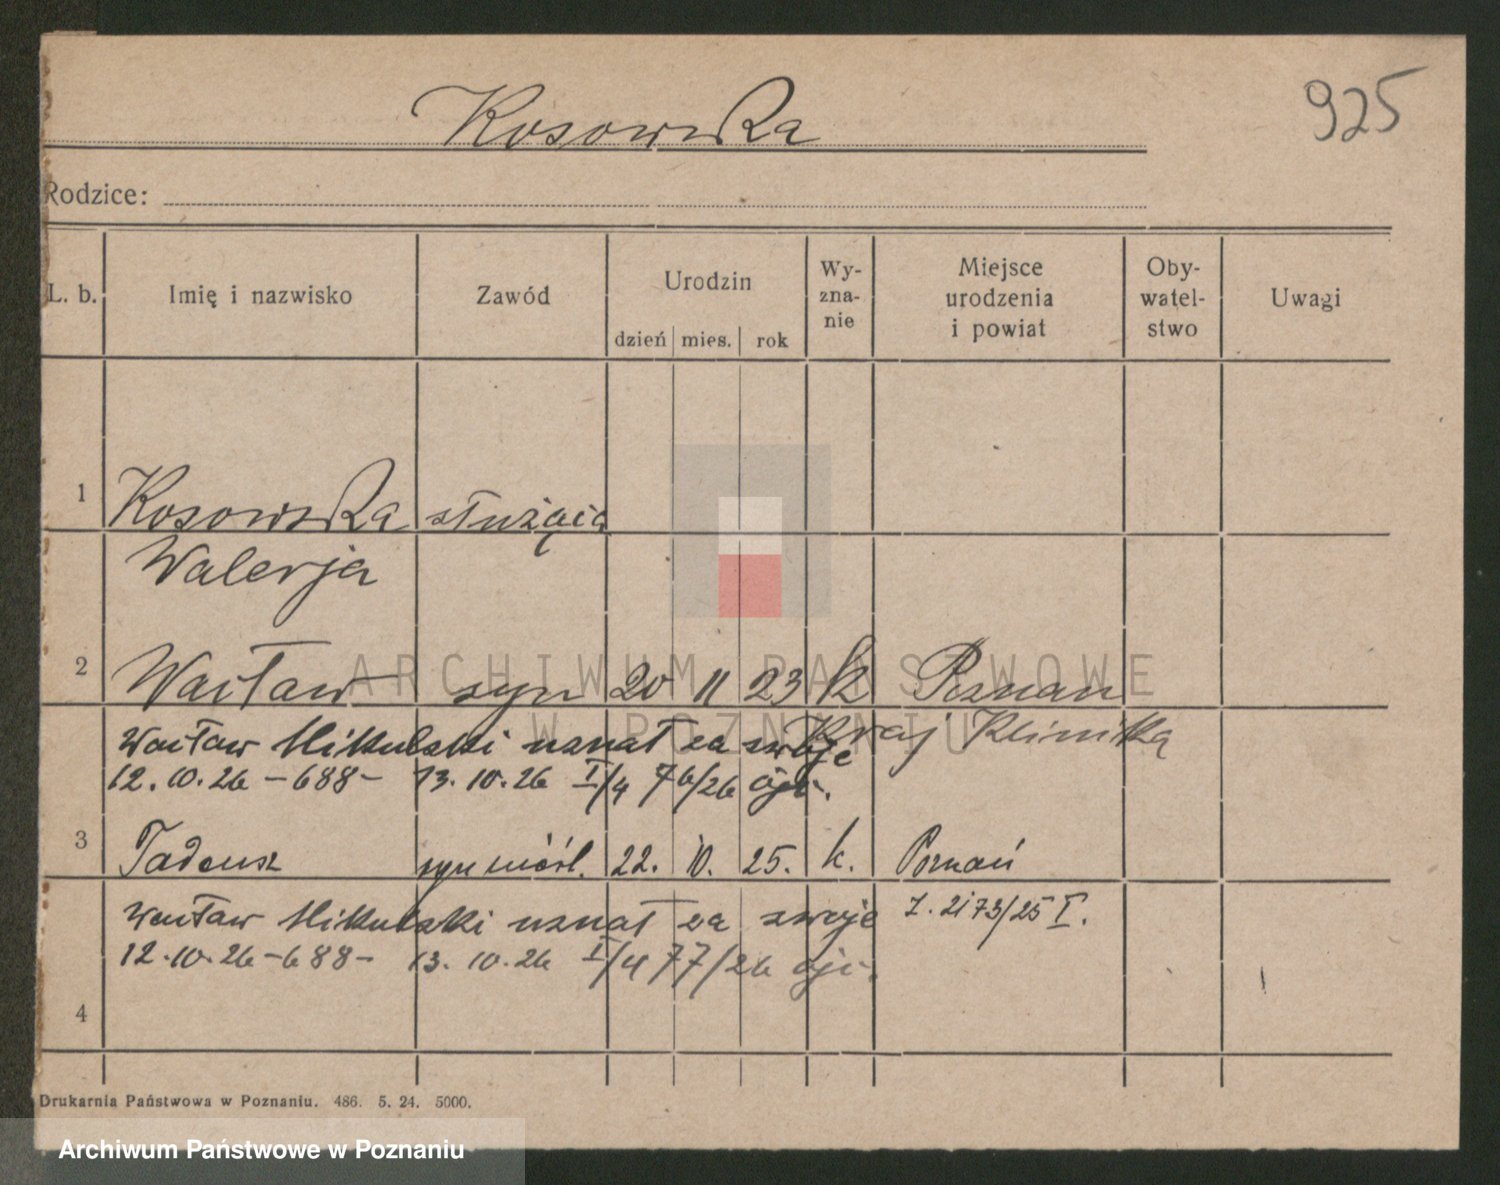 Kosowska
925
Rodzice:
L. b. Imię i nazwisko Zawód Urodzin dzień mies. rok Wy-zna-nie Miejsce urodzenia i powiat Oby-watel-stwo Uwagi
1 Kosowska służąca
Walerja
2 Wacław syn 20 11 23 k Poznań
Kraj Klinika
Wacław Mikulski uznał za swoje
12.10.26 -688- 13.10.26 I/4 76/26
3 Tadeusz syn nieśl. 22. 10. 25. k. Poznań
Wacław Mikulski uznał za swoje
Z. 2173/25 I.
12.10.26 -688- 13.10.26 I/4 77/26
4
Drukarnia Państwowa w Poznaniu. 486. 5. 24. 5000.
ARCHIWUM PAŃSTWOWE
W POZNANIU
Archiwum Państwowe w Poznaniu